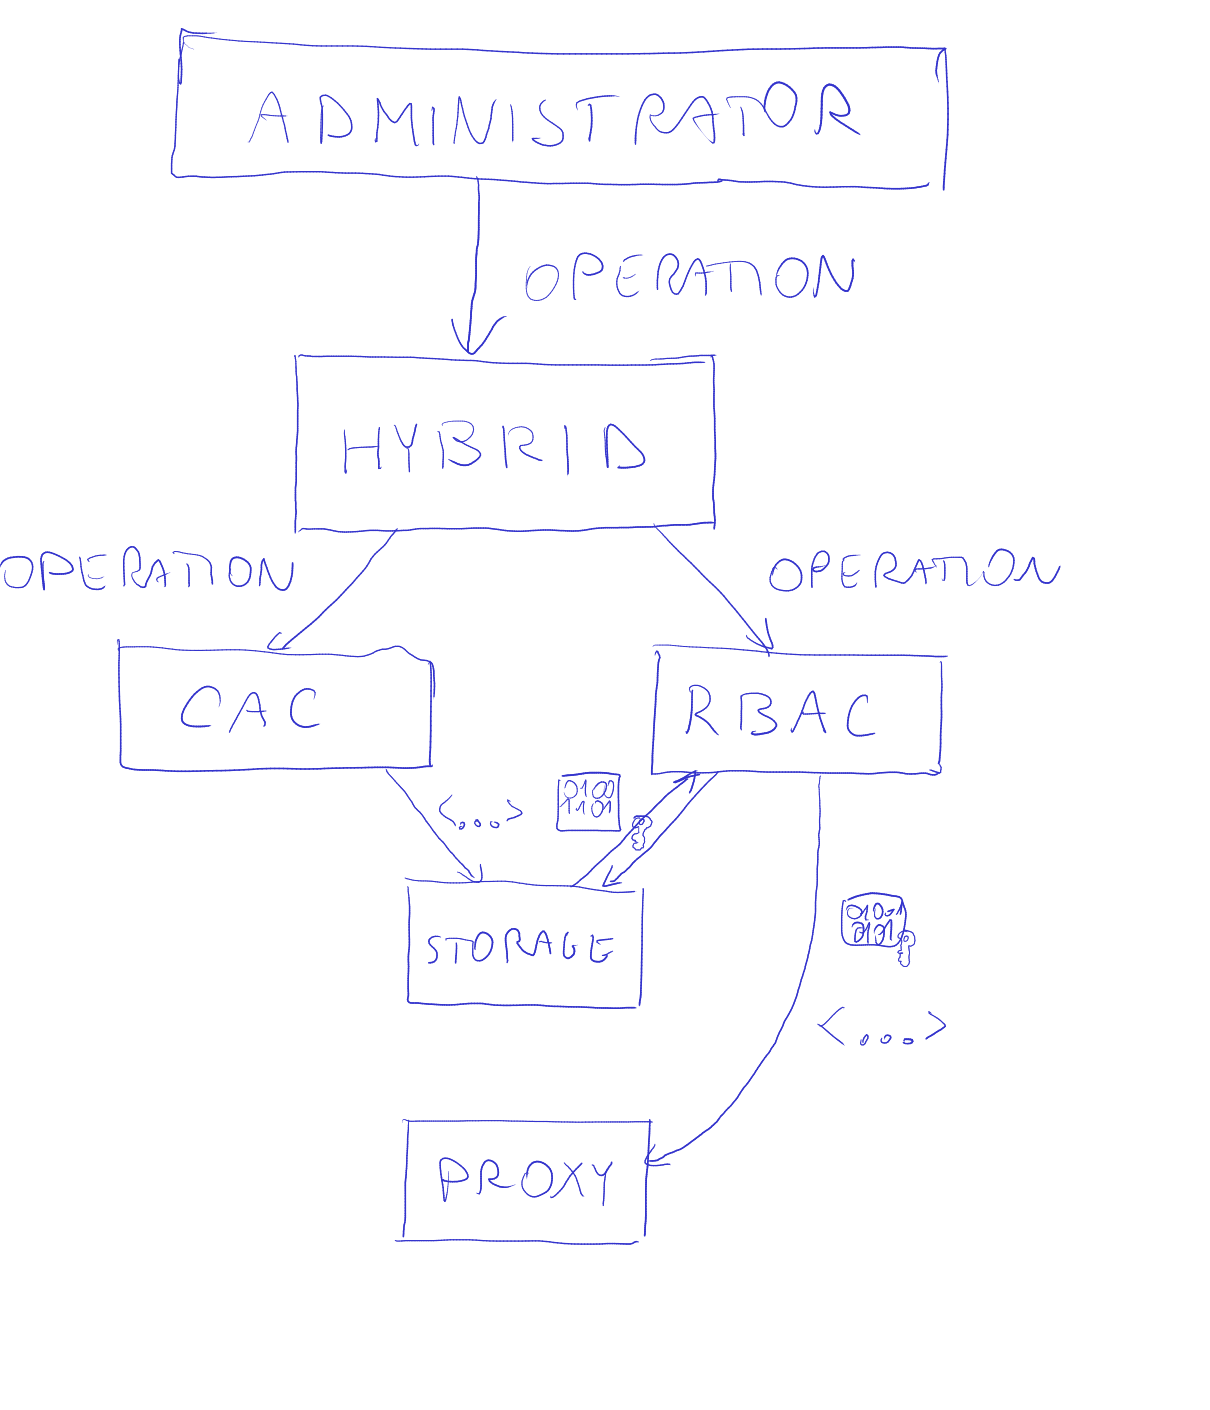 ADMINISTRATOR
OPERATION
HYBRID
OPERATION
OPERATION
CAC
RBAC
<...>
0100
1101
STORAGE
01001
0101
<...>
PROXY